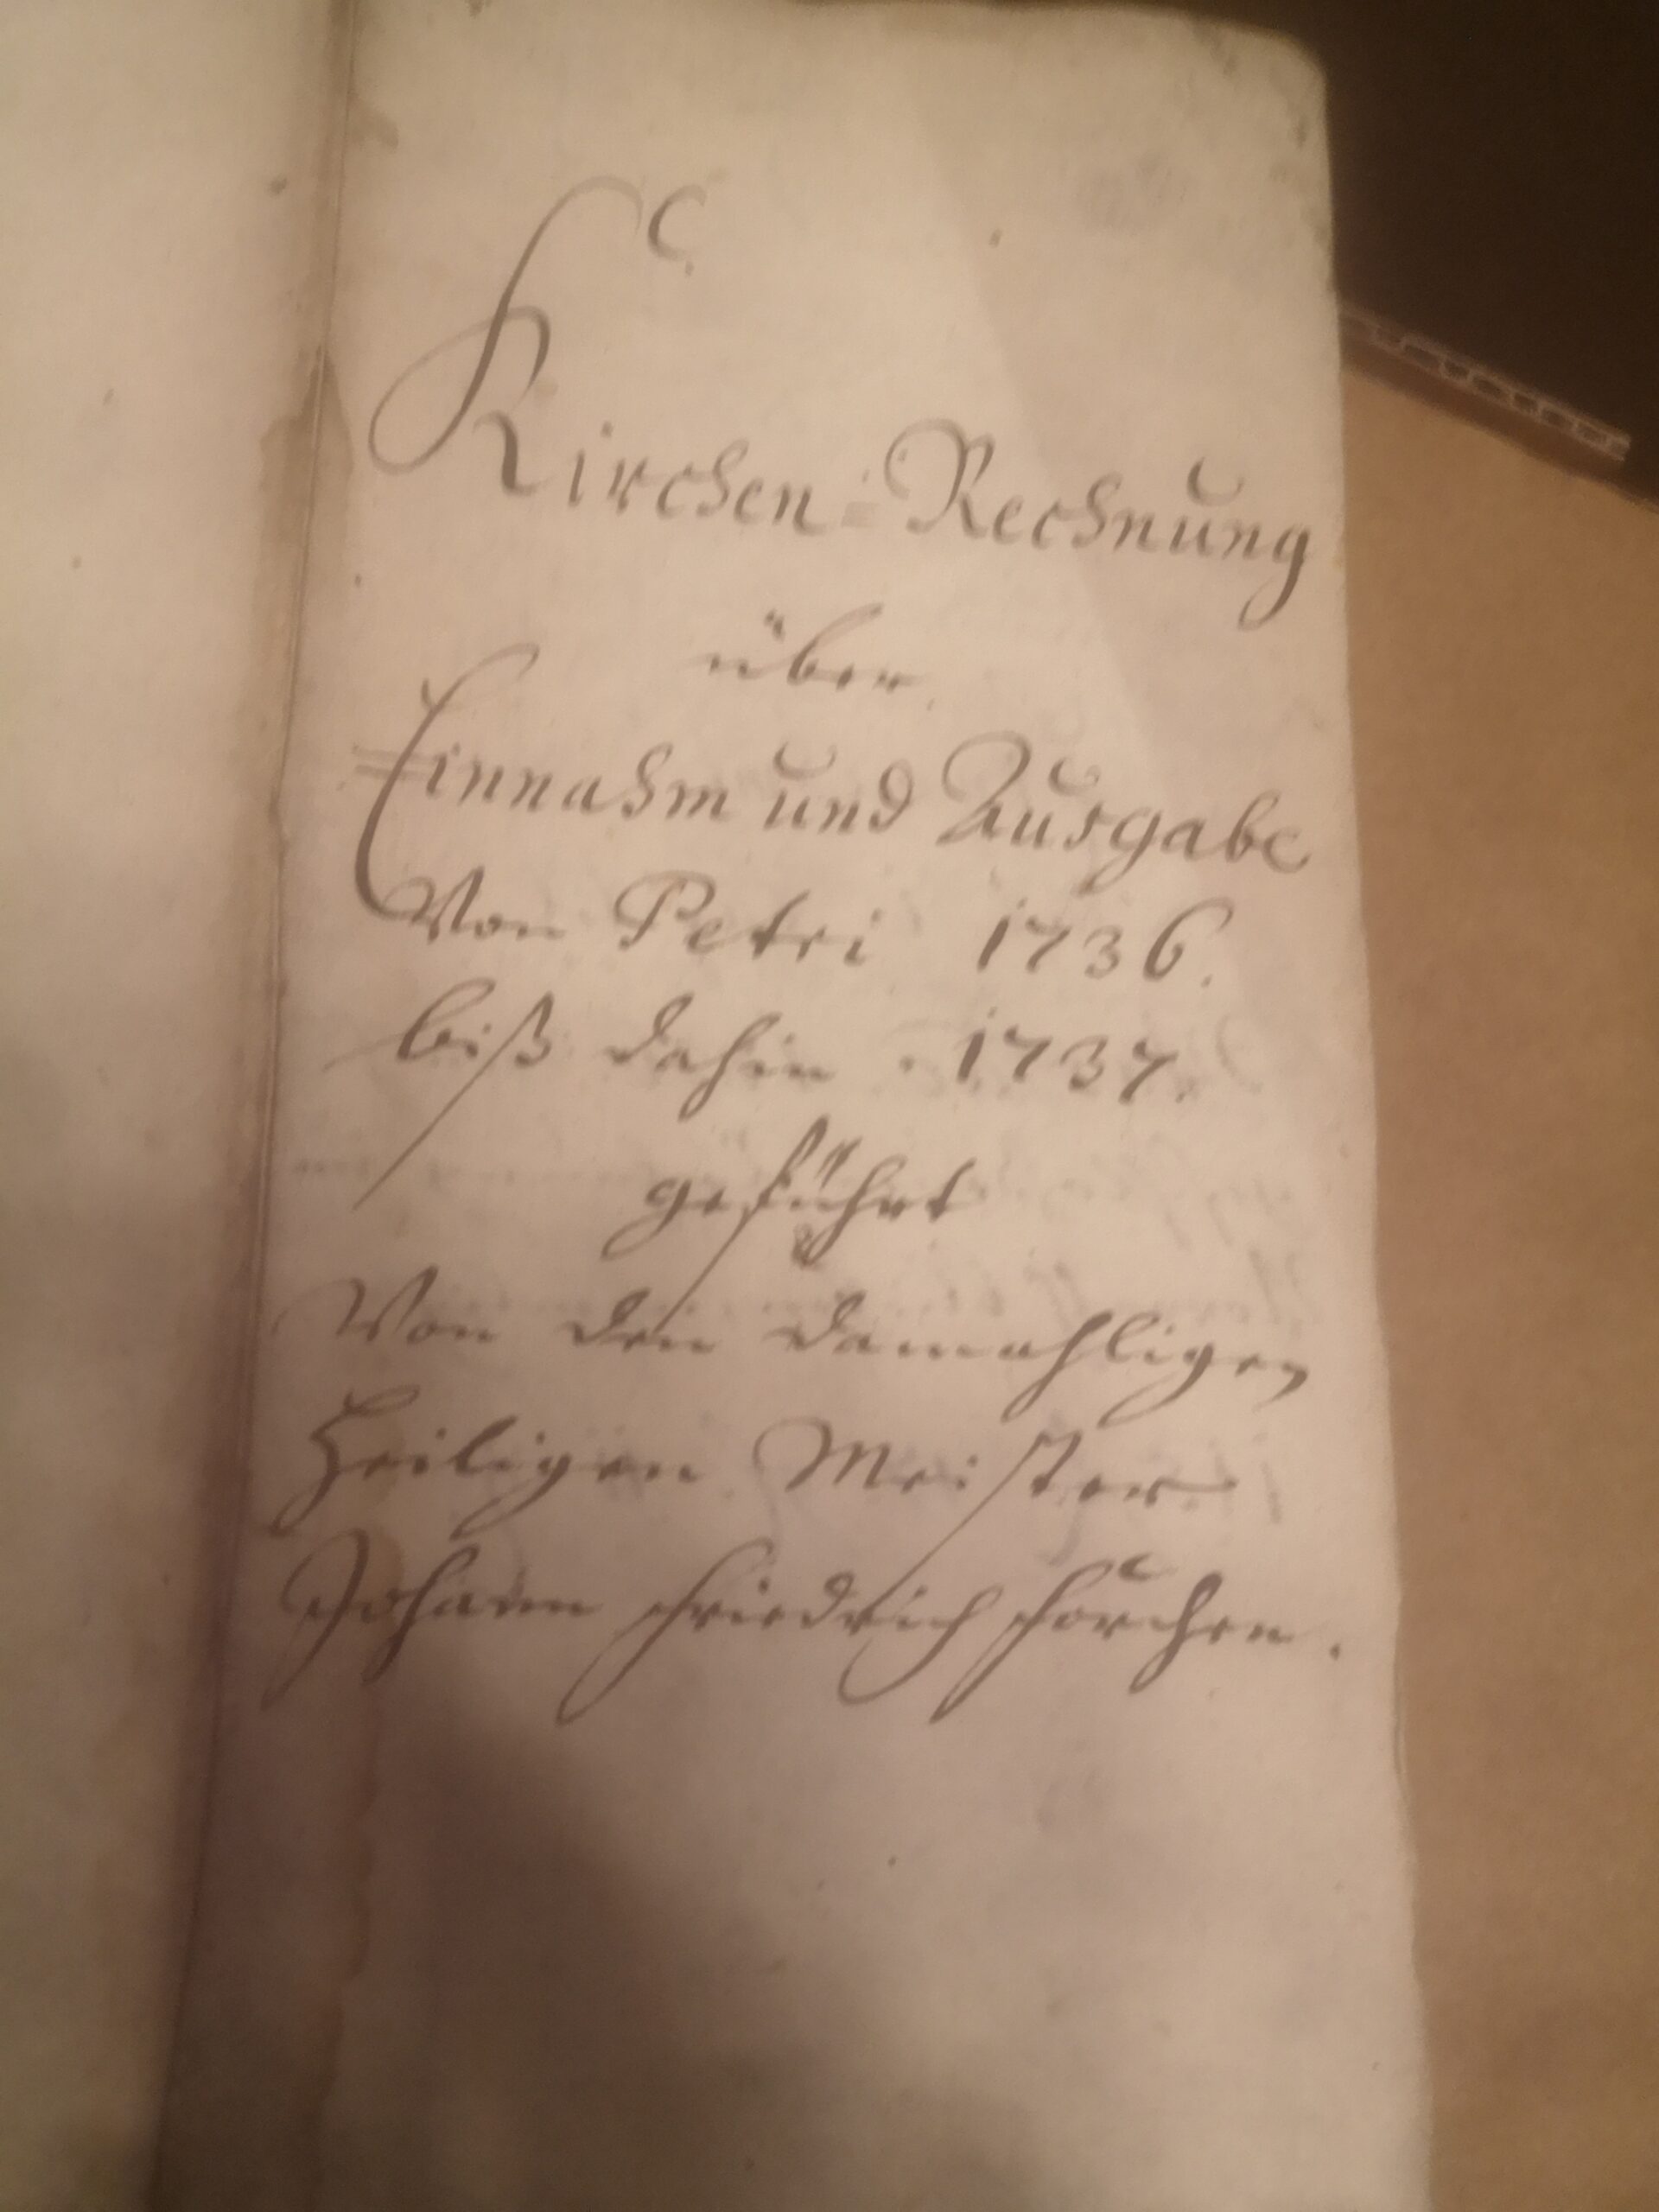 C.
Kirchen-Rechnung
über
Einnahm und Ausgabe
Von Petri 1736.
biß dahin 1737.
geführt
Von den damahligen
Heiligen Meister
Johann Friedrich